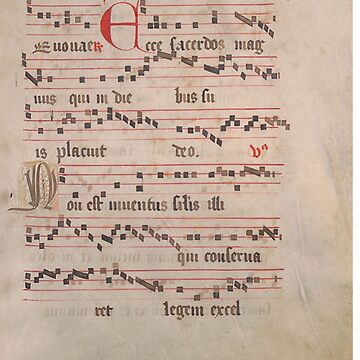 Euouae Ecce sacerdos mag
nus qui in die bus su
is placuit deo. V̄s
Non est inuentus silis illi
qui conserua
ret legem excel